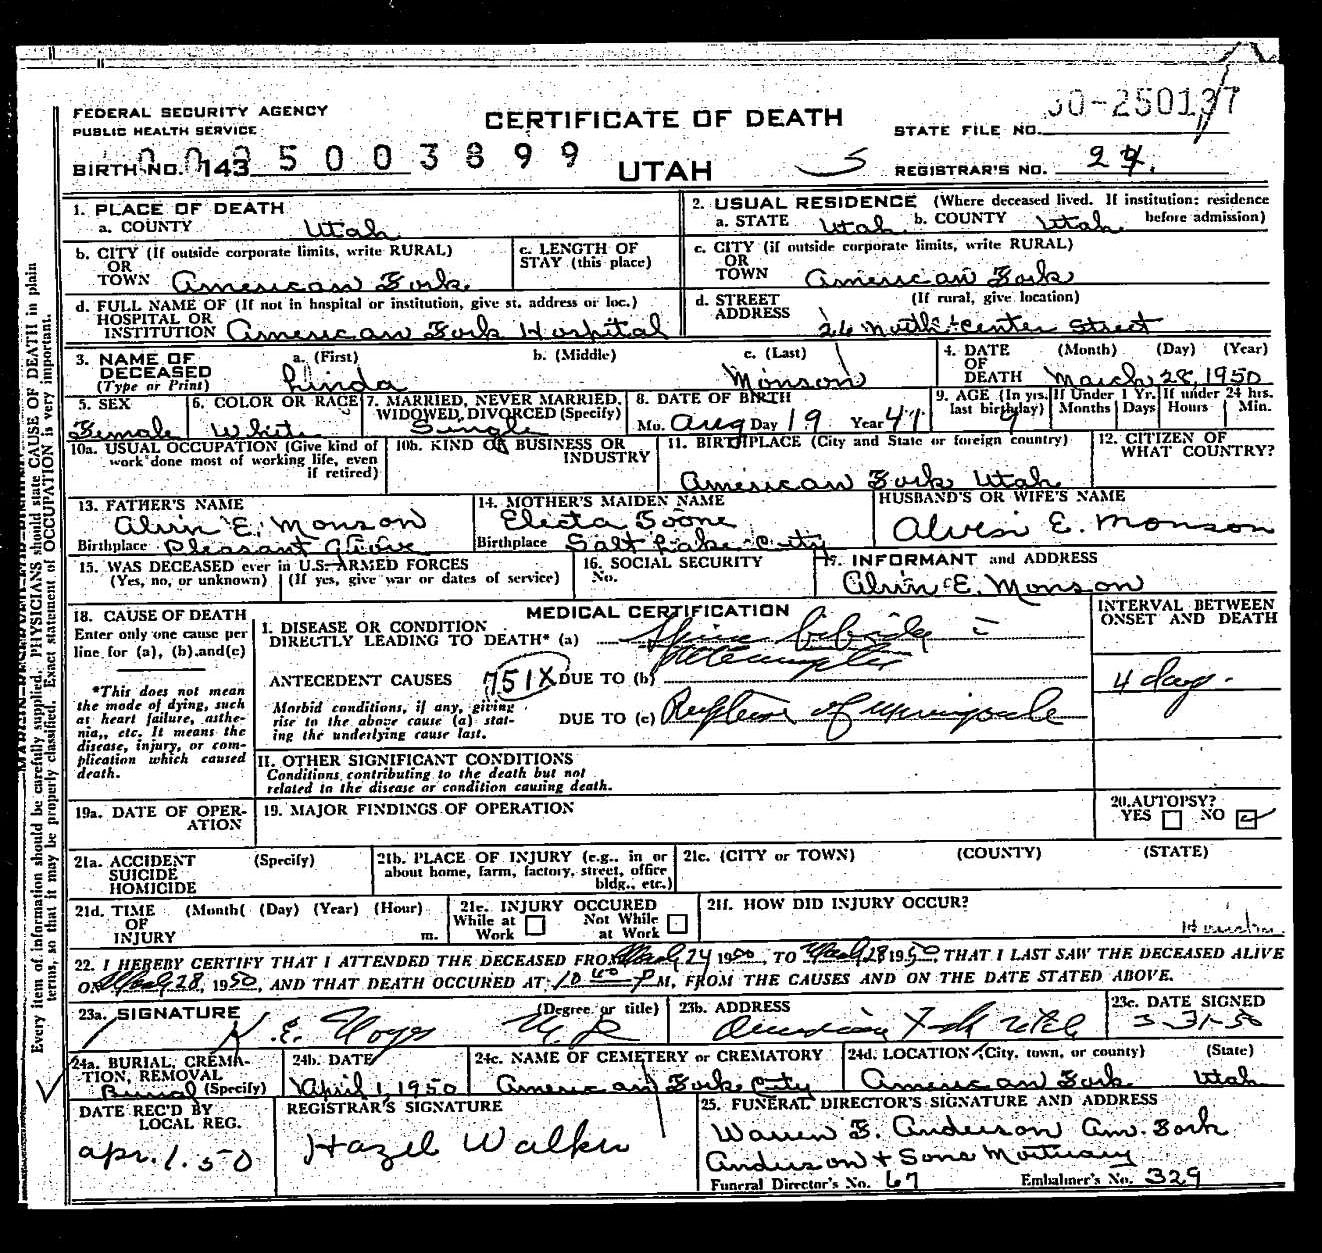 FEDERAL SECURITY AGENCY
PUBLIC HEALTH SERVICE
CERTIFICATE OF DEATH
STATE FILE NO.
BIRTH NO. 143 5003899
UTAH
REGISTRAR'S NO.
1. PLACE OF DEATH
a. COUNTY Utah
2. USUAL RESIDENCE (Where deceased lived. If institution: residence before admission)
a. STATE Utah b. COUNTY Utah
b. CITY (If outside corporate limits, write RURAL)
OR
TOWN American Fork
c. LENGTH OF
STAY (this place)
c. CITY (if outside corporate limits, write RURAL)
OR
TOWN American Fork
d. FULL NAME OF (If not in hospital or institution, give st. address or loc.)
HOSPITAL OR
INSTITUTION American Fork Hospital
d. STREET (If rural, give location)
ADDRESS 26 North Center Street
3. NAME OF
DECEASED
(Type or Print)
a. (First) Linda
b. (Middle)
c. (Last) Monson
4. DATE (Month) (Day) (Year)
OF
DEATH March 28, 1950
5. SEX
Female
6. COLOR OR RACE
White
7. MARRIED, NEVER MARRIED,
WIDOWED, DIVORCED (Specify)
Single
8. DATE OF BIRTH
Mo. Aug Day 19 Year
9. AGE (In yrs. last birthday) 9
If Under 1 Yr. Months Days
If under 24 hrs. Hours Min.
10a. USUAL OCCUPATION (Give kind of
work done most of working life, even
if retired)
10b. KIND OF BUSINESS OR
INDUSTRY
11. BIRTHPLACE (City and State or foreign country)
American Fork Utah
12. CITIZEN OF
WHAT COUNTRY?
13. FATHER'S NAME
Alvin E. Monson
Birthplace Pleasant Grove
14. MOTHER'S MAIDEN NAME
Electa Boone
Birthplace Salt Lake City
HUSBAND'S OR WIFE'S NAME
Alvin E. Monson
15. WAS DECEASED ever in U.S. ARMED FORCES
(Yes, no, or unknown) (If yes, give war or dates of service)
16. SOCIAL SECURITY
No.
17. INFORMANT and ADDRESS
Alvin E. Monson
18. CAUSE OF DEATH
Enter only one cause per
line for (a), (b), and (c)
*This does not mean
the mode of dying, such
as heart failure, asthe-
nia,, etc. It means the
disease, injury, or com-
plication which caused
death.
MEDICAL CERTIFICATION
INTERVAL BETWEEN
ONSET AND DEATH
I. DISEASE OR CONDITION
DIRECTLY LEADING TO DEATH* (a) Spina bifida
ANTECEDENT CAUSES 751X DUE TO (b)
4 days.
Morbid conditions, if any, giving
rise to the above cause (a) stat-
ing the underlying cause last.
DUE TO (c) Rupture of
II. OTHER SIGNIFICANT CONDITIONS
Conditions contributing to the death but not
related to the disease or condition causing death.
19a. DATE OF OPER-
ATION
19. MAJOR FINDINGS OF OPERATION
20. AUTOPSY?
YES NO
21a. ACCIDENT (Specify)
SUICIDE
HOMICIDE
21b. PLACE OF INJURY (e.g., in or
about home, farm, factory, street, office
bldg., etc.)
21c. (CITY or TOWN) (COUNTY) (STATE)
21d. TIME (Month( (Day) (Year) (Hour)
OF
INJURY m.
21e. INJURY OCCURED
While at Work Not While at Work
21f. HOW DID INJURY OCCUR?
22. I HEREBY CERTIFY THAT I ATTENDED THE DECEASED FROM March 24 1950, TO March 28 1950 THAT I LAST SAW THE DECEASED ALIVE
ON March 28, 1950, AND THAT DEATH OCCURED AT 10 40 P M, FROM THE CAUSES AND ON THE DATE STATED ABOVE.
23a. SIGNATURE (Degree or title)
23b. ADDRESS
American Fork Utah
23c. DATE SIGNED
3-31-50
24a. BURIAL, CREMA-
TION, REMOVAL
Burial (Specify)
24b. DATE
April 1, 1950
24c. NAME OF CEMETERY or CREMATORY
American Fork City
24d. LOCATION (City, town, or county) (State)
American Fork Utah
DATE REC'D BY
LOCAL REG.
Apr. 1. 50
REGISTRAR'S SIGNATURE
Hazel Walker
25. FUNERAL DIRECTOR'S SIGNATURE AND ADDRESS
Warren B. Anderson Am. Fork
Anderson + Sons Mortuary
Funeral Director's No. 67 Embalmer's No. 329
Every item of information should be carefully supplied. PHYSICIANS should state CAUSE OF DEATH in plain
terms, so that it may be properly classified. Exact statement of OCCUPATION is very important.